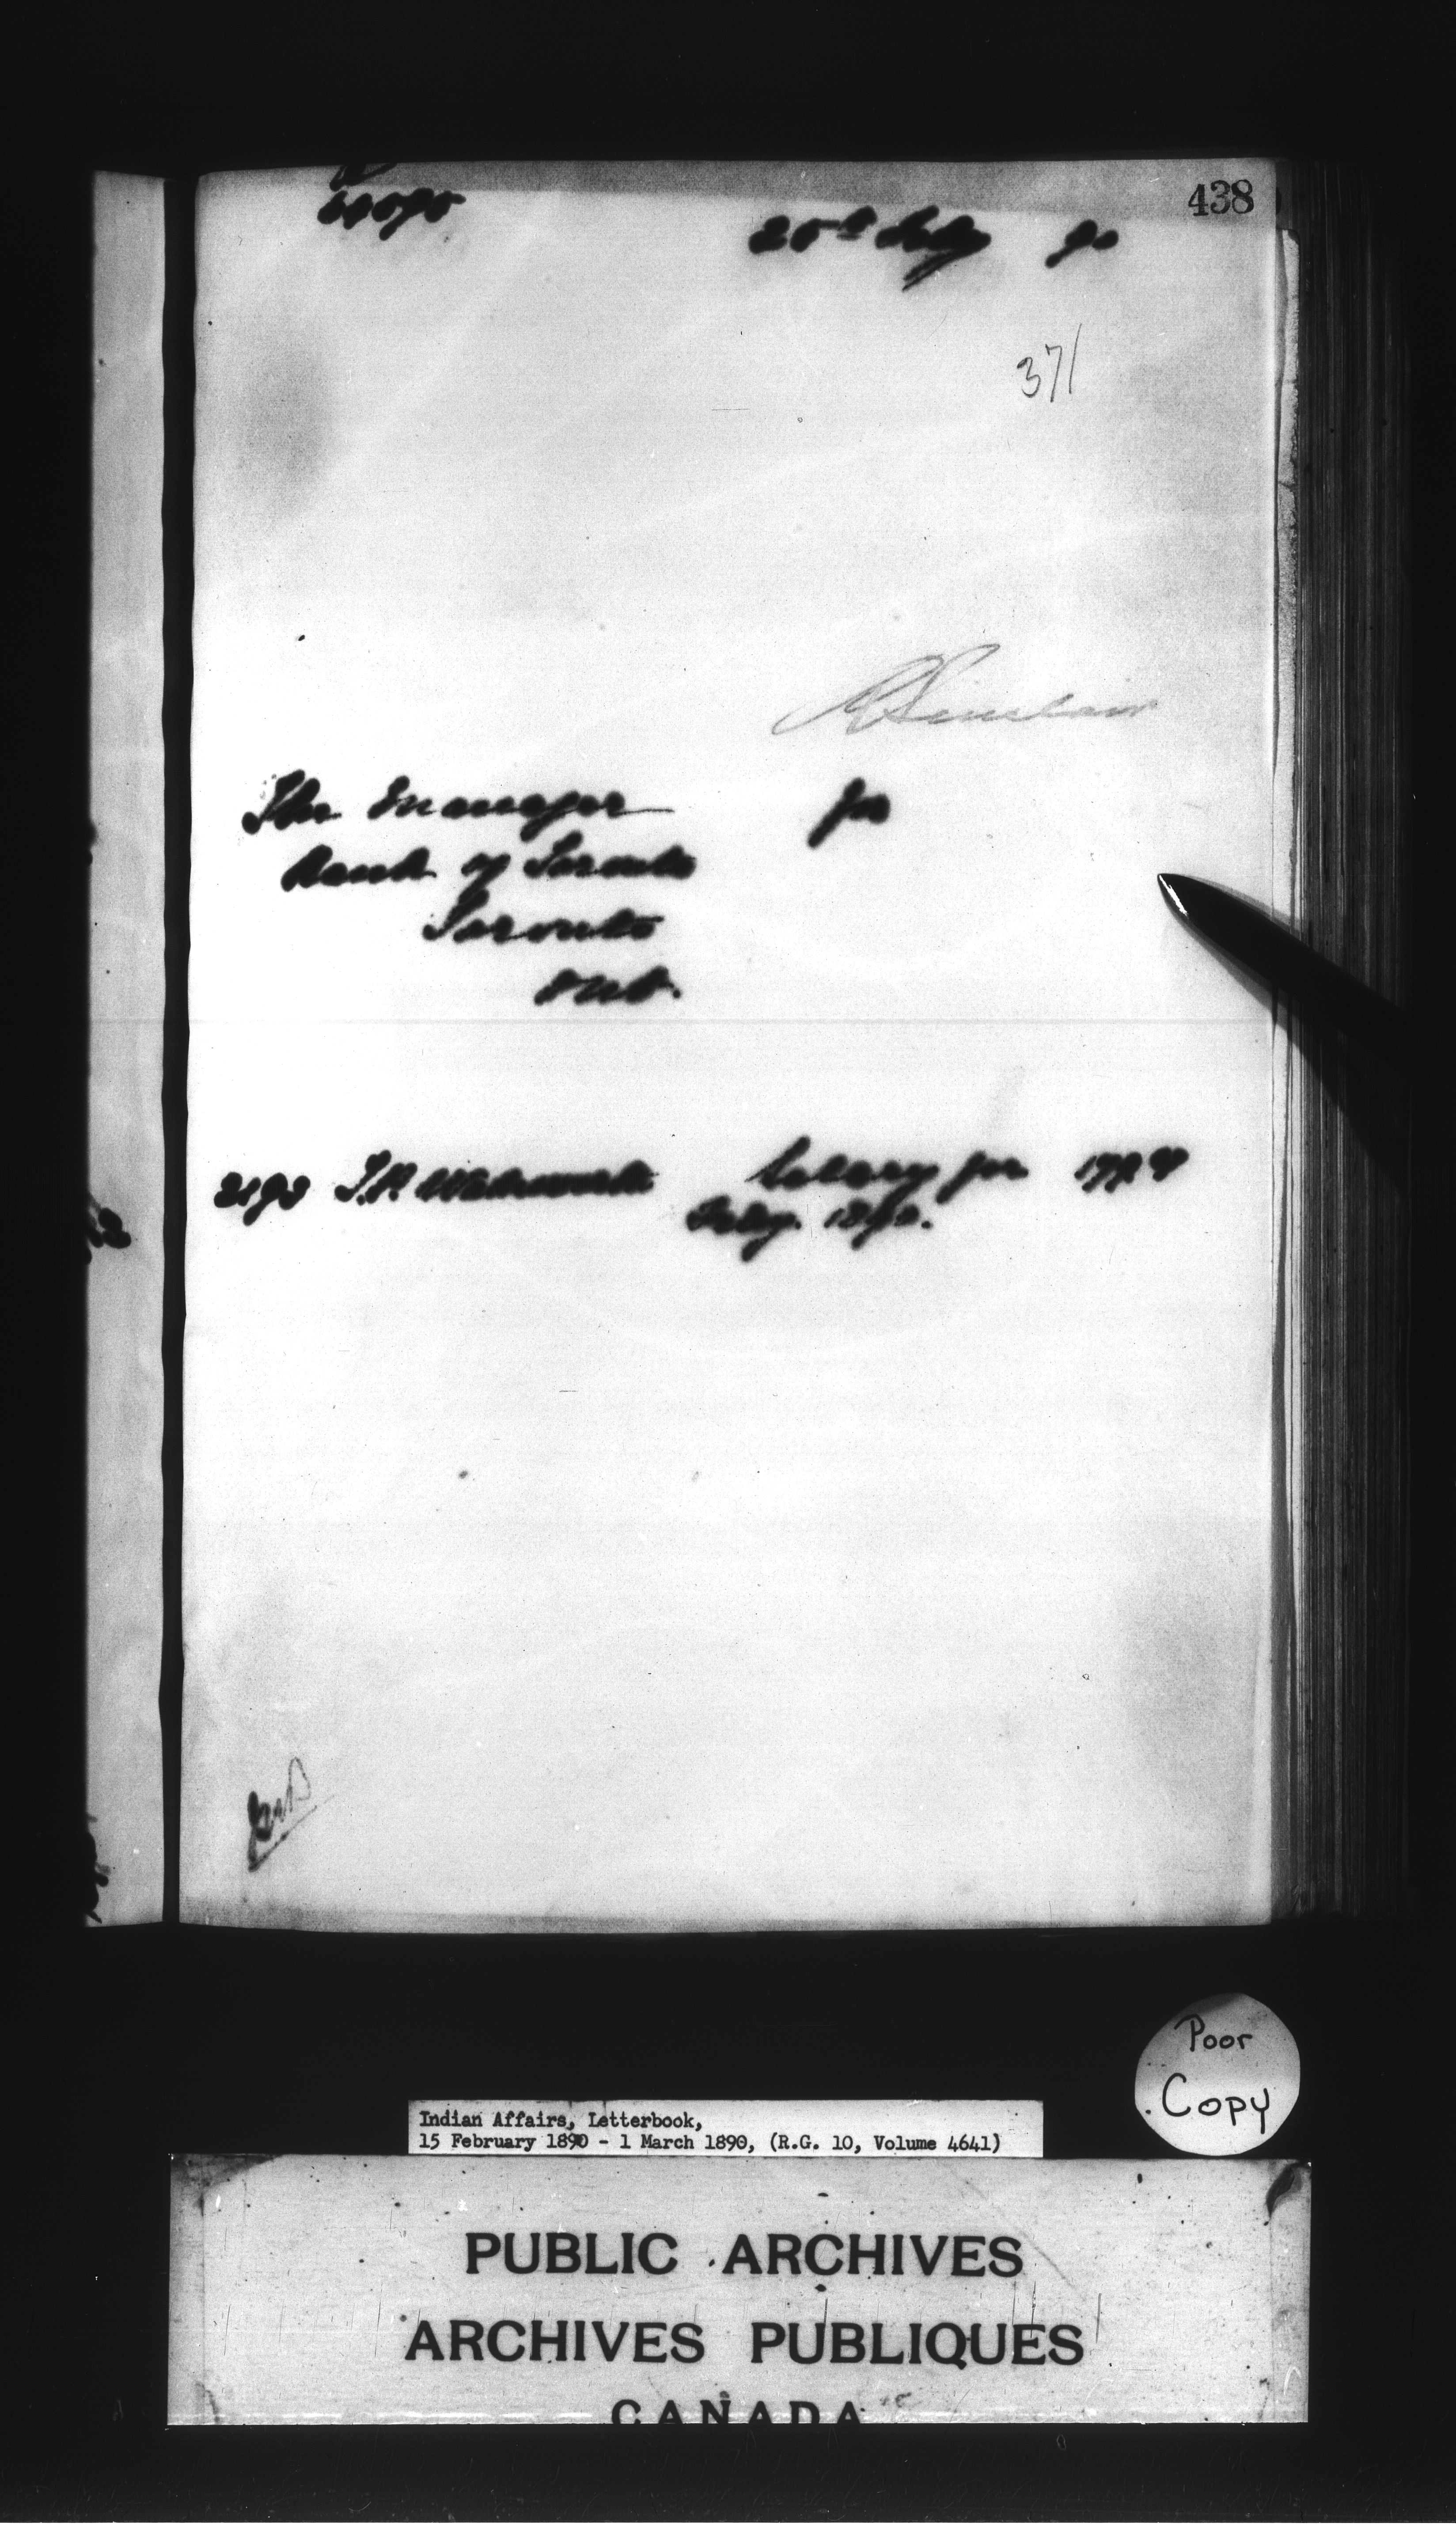 438
25th Feby 90
371
R Sinclair
The Manager for
Bank of Toronto
Toronto
Ont.
2193 T.P. Wadsworth Salary for
Feby. 1890.
Poor
Copy
Indian Affairs, Letterbook,
15 February 1890 - 1 March 1890, (R.G. 10, Volume 4641)
PUBLIC ARCHIVES
ARCHIVES PUBLIQUES
CANADA